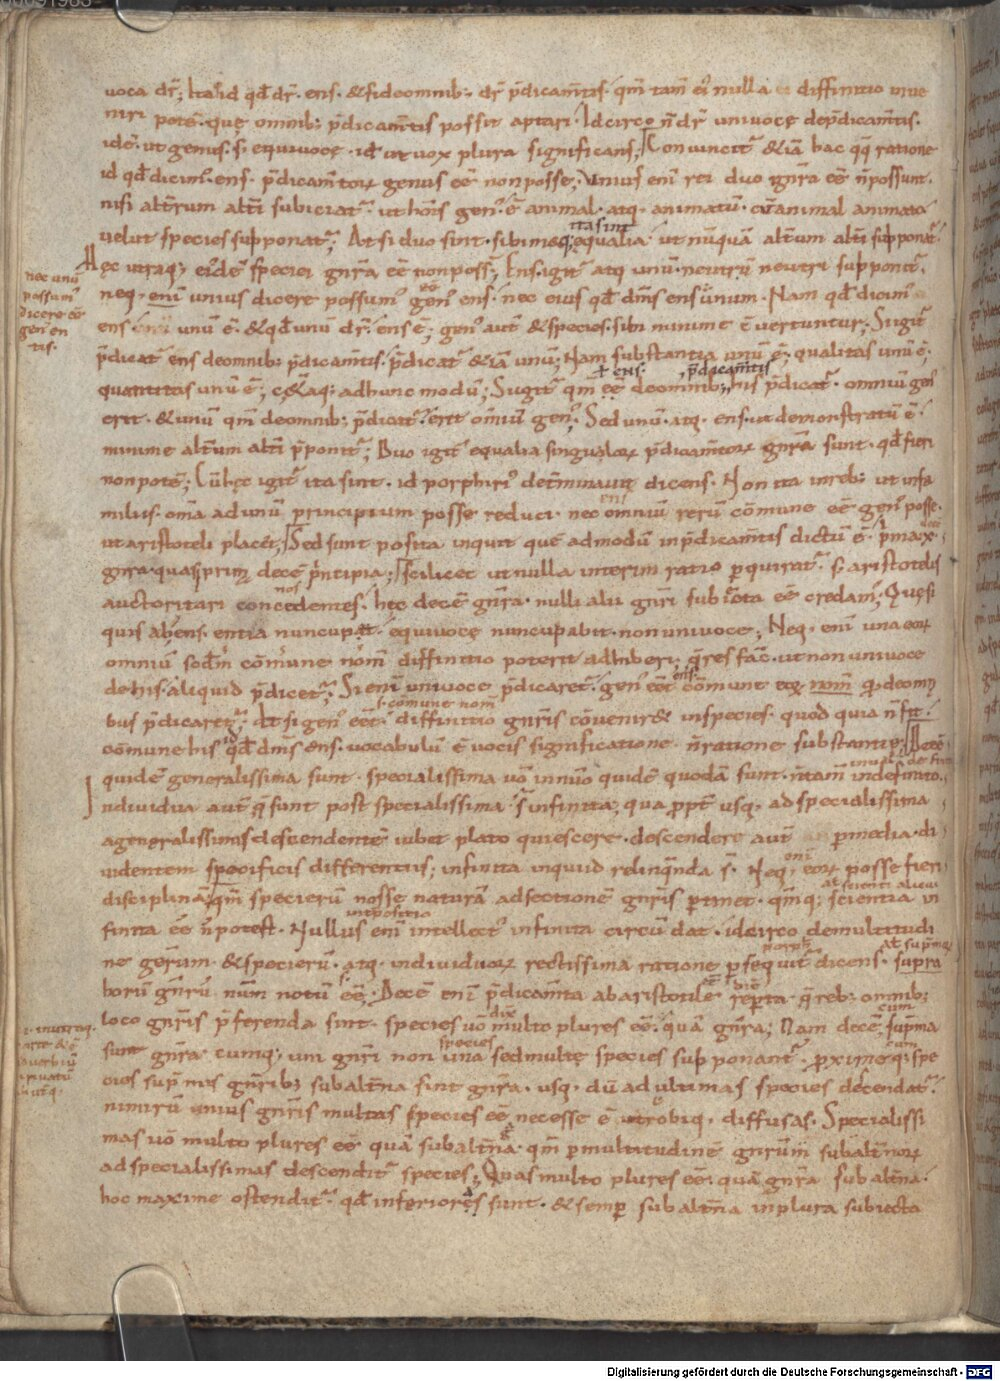 voca dr̄; Ita &id qđ dr̄ ens. &si de omnib; dr̄ p̄dicam̄tis. qm̄ tam̄ ei' nulla diffinitio inve
niri potē. quę omnib; p̄dicam̄tis possit aptari. Idcirco n̄ dr̄ univoce de p̄dicam̄tis.
idē. ut genus. s; equivoce. id ut vox plura significans; Convincit̄ &iā hac q̄q; ratione
id qđ dicim'. ens. p̄dicam̄torꝫ genus eē non posse; Unius eni rei duo gn̄ra eē n̄ possunt.
nisi alt̄rum alt̄i subiciat̄. ut hōis gen' ē animal. atq. animatū. cū animal animata
ita sint
velut species supponat̄; At si duo sint. sibimeq; equalia ut nūquā alt̄um alt̄i supponat̄.
Hęc utraq; ei'dē speciei gn̄ra eē non poss̄; Ens. igit̄ atq unū. neutrū neutri supponit̄.
nec unū
possum'
dicere eē
gen' en
tis.
neq. eni unius dicere possum' gen' ens. nec eius qđ dm̄s ens unum. Nam qđ dicim'
ens unū ē. &qđ unū dr̄. ens ē; gen' aut̄ &species. sibi minime cvertuntur; Si igit̄
p̄dicat̄ ens de omnib; p̄dicam̄tis. p̄dicat̄ &iā unū; Nam substantia unū ē; qualitas unū ē.
ens. p̄dicam̄tis
quantitas unū ē; c&aq; ad hunc modū; Si igit̄ qm̄ eē de omnib; his p̄dicat̄. omniū gen'
erit. &unū qm̄ de omnib; p̄dicat̄. erit omiū gen'. Sed unū. atq. ens. ut demonstratū ē.
minime alt̄um alt̄i p̄ponit̄; Duo igit̄ equalia singularꝫ p̄dicam̄torꝫ gn̄ra sunt. qđ fieri
non potē; Cū hęc igit̄ ita sint. id porphiri' det̄minavit dicens. Non ita in reb; ut in fa
ens
miliis. oma ad unū principium posse reduci. nec omniū rerū cōmune eē gen' posse.
ut aristoteli plac&; Sed sunt posita inquit que ad modū in p̄dicam̄tis dictū ē. p̄ma. x.
decē
gn̄ra. quasi prim decē p̄ntipia; scilicet ut nulla interim ratio p̄quirat̄. s; aristotelis
nos
auctoritati concedentes. hęc decē gn̄ra. nulli alii gn̄ri subiecta eē credam'. Quę si
quis om̄s. entia nuncup&. equivoce nuncupabit. non univoce; Neq. eni una eorꝫ
omniū sođm cōmune nom̄ diffinitio poterit adhiberi; q̄ res fac̄. ut non univoce
ens.
de his. aliquid p̄dicet̄; Si eni univoce p̄dicaret̄. gen' eēt cōmune eorꝫ nom̄ q̇ de om̄
i. cōmune nom̄
bus p̄dicaret̄; At si gen' eēt. diffinitio gn̄ris cōvenir& in species. quod quia n̄ fit.
id
cōmune his qđ dm̄s ens. vocabulū ē vocis significatione. n̄ ratione substantię; Decē
quidē generalissima sunt. specialissima vō in nūo quidē quodā sunt. n̄ tam̄ indefinito.
Individua aut̄. q̄ sunt post specialissima. s̄ infinita; qua ppt̄ usq. ad specialissima
a generalissimis descendentē iubet plato quiescere. descendere aut̄ p media. di
videntem specificis differentiis; infinita inquid relinq̄nda s̄. Neq. eorꝫ posse fieri
eni
disciplinā. qm̄ specierū nosse naturā ad sectionē gn̄ris p̄tinet. qm̄q; scientia in
finita eē n̄ potest. Nullus eni intellect' infinita circūdat. idcirco de multitudi
ne gerum. &specierū. atq. individuorꝫ rectissima ratione p̄sequit̄ dicens. supra
horū gn̄rū num̄ notū eē; Decē eni p̄dicam̄ta ab aristotile rep̄ta. q̄ reb; omnib;
loco gn̄ris p̄ferenda sint. species vō multo plures eē. quā gn̄ra; Nam decē sup̄ma
sunt gn̄ra. cumq; uni gn̄ri non una sed multę species supponant̄. pxime q; spe
species
cies sup̄mis gn̄rib; subalt̄na sint gn̄ra. usq. dū ad ultimas species descendat̄.
nimirū unius gn̄ris multas species eē necesse ē utrobiq. diffusas. Specialissi
mas vō multo plures eē quā subalt̄na. qm̄ p multitudinē gn̄rum subalt̄norꝫ
ad specialissimas descendit̄ species; Quas multo plures eē. quā gn̄ra subalt̄na.
hoc maxime ostendit̄. qđ inferiores sunt. &semp̄ subalt̄na in plura subiecta
Digitalisierung gefördert durch die Deutsche Forschungsgemeinschaft - DFG